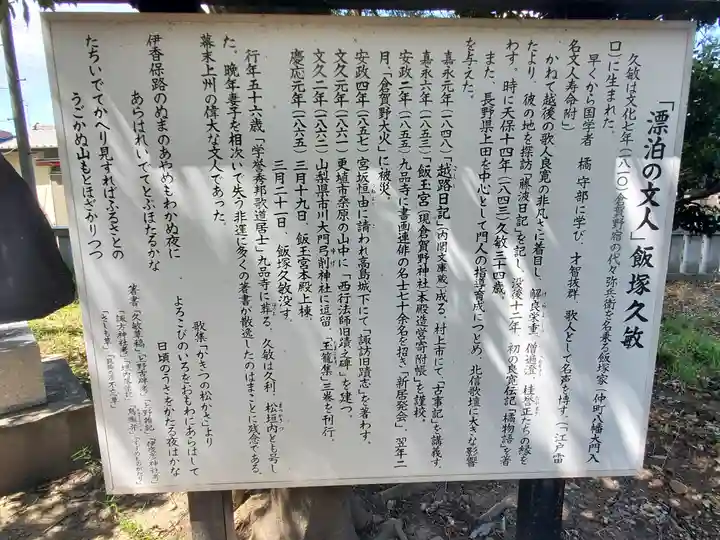 「漂泊の文人」飯塚久敏
久敏は文化七年(一八一〇)倉賀野宿の代々弥兵衛を名乗る飯塚家(仲町八幡大門入
口)に生まれた。
早くから国学者 橘 守部に学び、才智抜群、歌人として名声を博す。(「江戸雷
名文人寿命附」)
かねて越後の歌人良寛の非凡さに着目し、解良栄重、僧遍澄、桂誉正たちの縁を
たより、彼の地を探訪「藤波日記」を記し、没後十二年、初の良寛伝記「橘物語」を著
わす。時に天保十四年(一八四三)久敏三十四歳。
また、長野県上田を中心として門人の指導育成につとめ、北信歌壇に大きな影響
を与えた。
嘉永元年(一八四八)「越路日記」(内閣文庫蔵)成る。村上市にて「古事記」を講義す。
嘉永六年(一八五三)「飯玉宮(現倉賀野神社)本殿造営寄附帳」を謹校。
安政二年(一八五五)九品寺に書画連俳の名士七十余名を招き「新居発会」翌年二
月、「倉賀野大火」に被災。
安政四年(一八五七)宮坂恒由に請われ高島城下にて「諏訪旧蹟志」を著わす。
文久元年(一八六一)更埴市桑原の山中に「西行法師旧蹟之碑」を建つ。
文久二年(一八六二)山梨県市川大門弓削神社に逗留、「玉籠集」三巻を刊行。
慶応元年(一八六五)三月十九日、飯玉宮本殿上棟
三月二十一日、飯塚久敏没す。
行年五十六歳「学誉秀邦歌道居士」九品寺に葬る。久敏は久利、松垣内とも号し
た。晩年妻子を相次いで失う非運に多くの著書が散逸したのはまことに残念である。
幕末上州の偉大な文人であった。
歌集「かきつの松かさ」より
よろこびのいろをおもわにあらはして
日頃のうさをかたる夜はかな
伊香保路のぬまのあやめもわかぬ夜に
あらはれいでてとぶほたるかな
たちいでてかへり見すればふるさとの
うごかぬ山もとほざかりつつ
著書